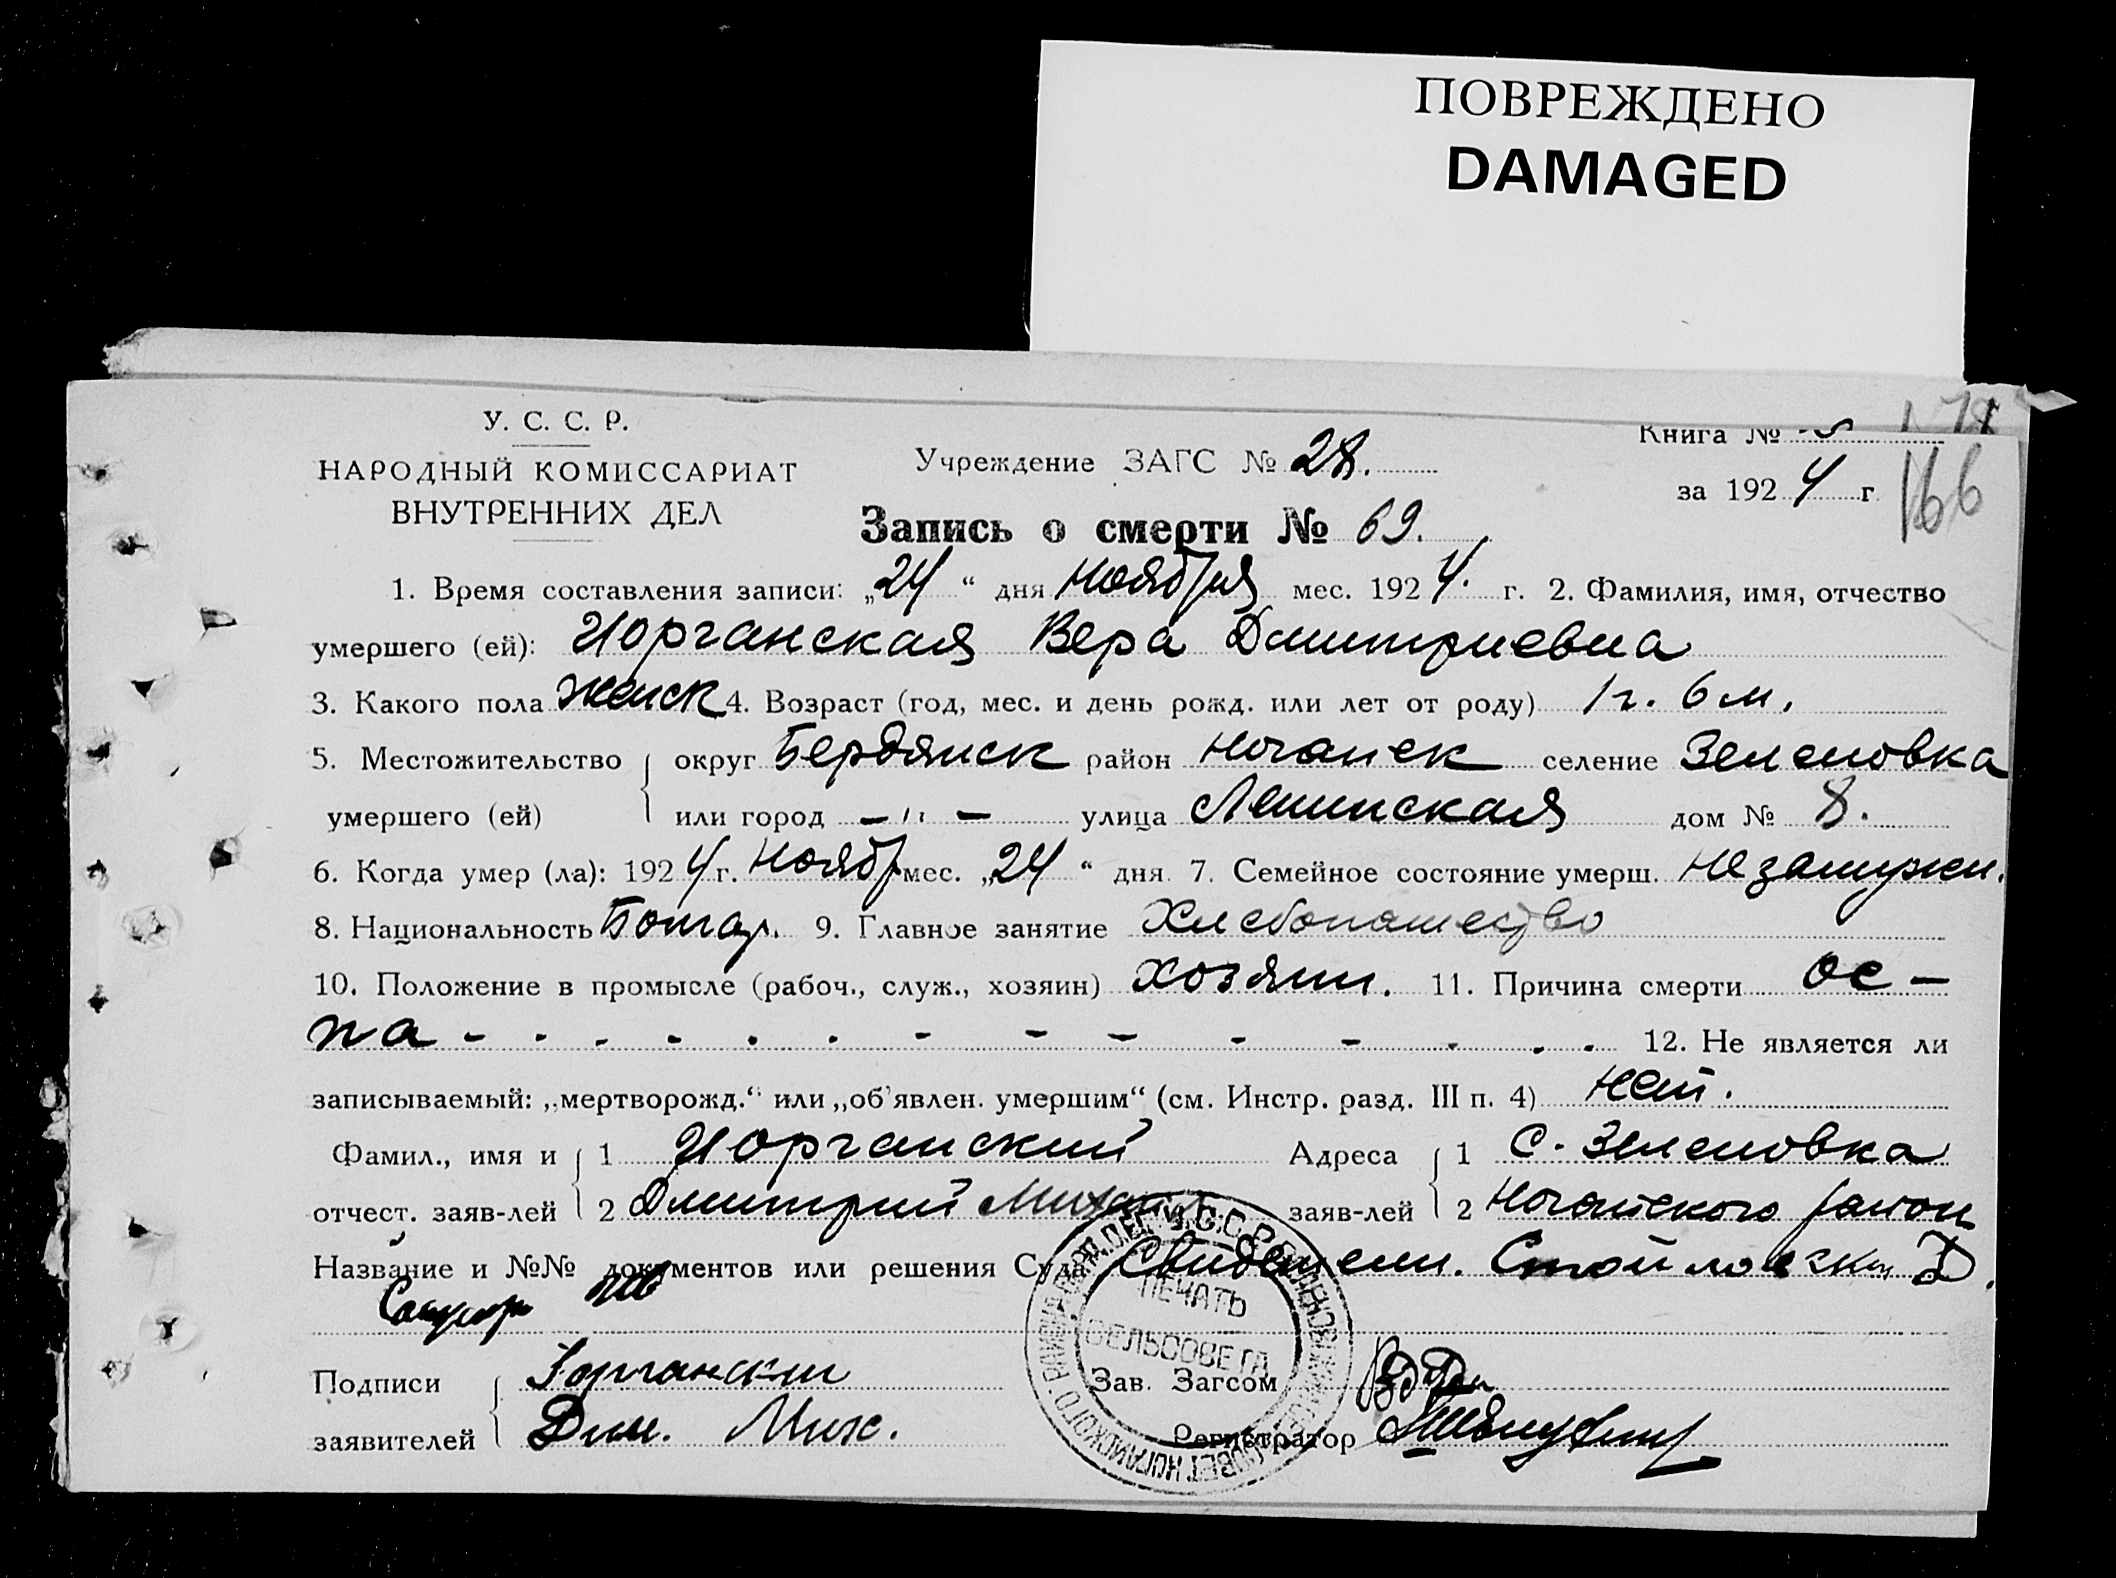 ПОВРЕЖДЕНО
DAMAGED
У. С. С. Р.
НАРОДНЫЙ КОМИССАРИАТ
ВНУТРЕННИХ ДЕЛ
Учреждение ЗАГС № 28.
Книга №
за 1924 г.
166
Запись о смерти № 69.
1. Время составления записи: „24“ дня Ноября мес. 1924. г. 2. Фамилия, имя, отчество
умершего (ей): Иорганская Вера Дмитриевна
3. Какого пола женск 4. Возраст (год, мес. и день рожд. или лет от роду) 1 г. 6 м.
5. Местожительство округ Бердянск район Ногайск селение Зеленовка
умершего (ей) или город – " – улица Ленинская дом № 8.
6. Когда умер (ла): 1924 г. Ноябр мес. „24“ дня. 7. Семейное состояние умерш. Незамужн.
8. Национальность Болгар. 9. Главное занятие Хлебопашество
10. Положение в промысле (рабоч., служ., хозяин) хозяин. 11. Причина смерти ос-
па - - - - - - - - - - - - - 12. Не является ли
записываемый: „мертворожд.“ или „об'явлен. умершим“ (см. Инстр. разд. III п. 4) Нет.
Фамил., имя и 1 Иорганский Адреса 1 С. Зеленовка
отчест. заяв-лей 2 Дмитрий заяв-лей 2 Ногайского район
Название и №№ документов или решения Суда
ПЕЧАТЬ
СЕЛЬСОВЕТА
Подписи Иорганский Зав. Загсом
заявителей Дим. Мих. Регистратор